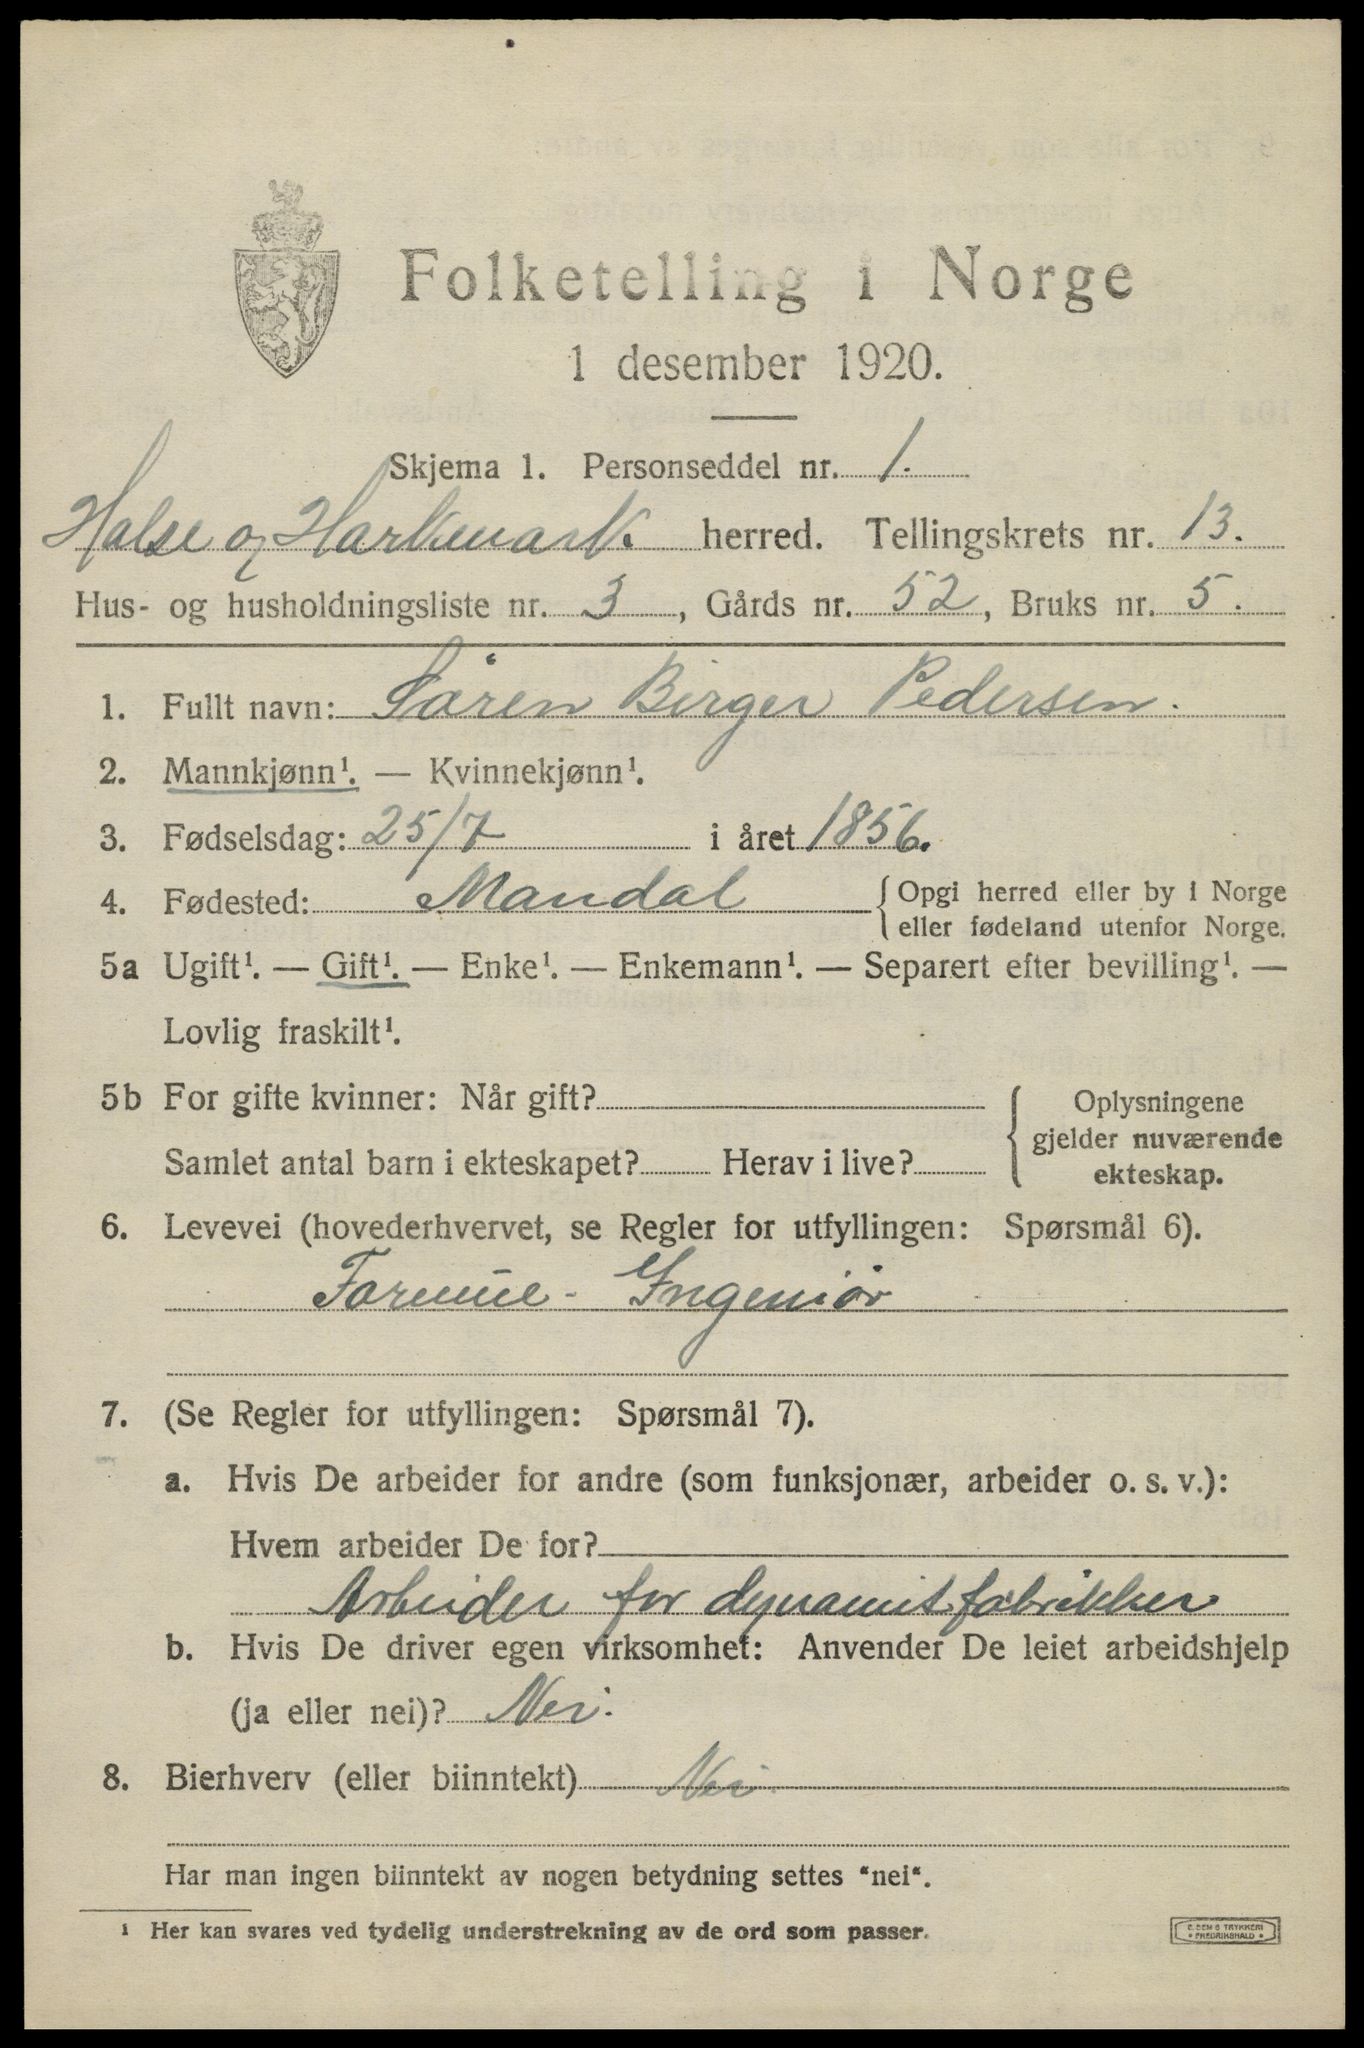 Folketelling i Norge
1 desember 1920.
Skjema 1. Personseddel nr. 1.
Halse og Harkmark herred. Tellingskrets nr. 13.
Hus- og husholdningsliste nr. 3, Gårds nr. 52, Bruks nr. 5.
1. Fullt navn: Sören Birger Pedersen.
2. Mannkjønn¹. — Kvinnekjønn¹.
3. Fødselsdag: 25/7 i året 1856.
4. Fødested: Mandal { Opgi herred eller by i Norge
eller fødeland utenfor Norge.
5a Ugift¹. — Gift¹. — Enke¹. — Enkemann¹. — Separert efter bevilling¹. —
Lovlig fraskilt¹.
5b For gifte kvinner: Når gift?
Samlet antal barn i ekteskapet? Herav i live?
{ Oplysningene
gjelder nuværende
ekteskap.
6. Levevei (hovederhvervet, se Regler for utfyllingen: Spørsmål 6).
Formue - Ingeniör
7. (Se Regler for utfyllingen: Spørsmål 7).
a. Hvis De arbeider for andre (som funksjonær, arbeider o. s. v.):
Hvem arbeider De for?
Arbeider for dynamitfabrikker
b. Hvis De driver egen virksomhet: Anvender De leiet arbeidshjelp
(ja eller nei)? Nei.
8. Bierhverv (eller biinntekt) Nei.
Har man ingen biinntekt av nogen betydning settes "nei".
¹ Her kan svares ved tydelig understrekning av de ord som passer.
E. SEM'S TRYKKERI
FREDRIKSHALD